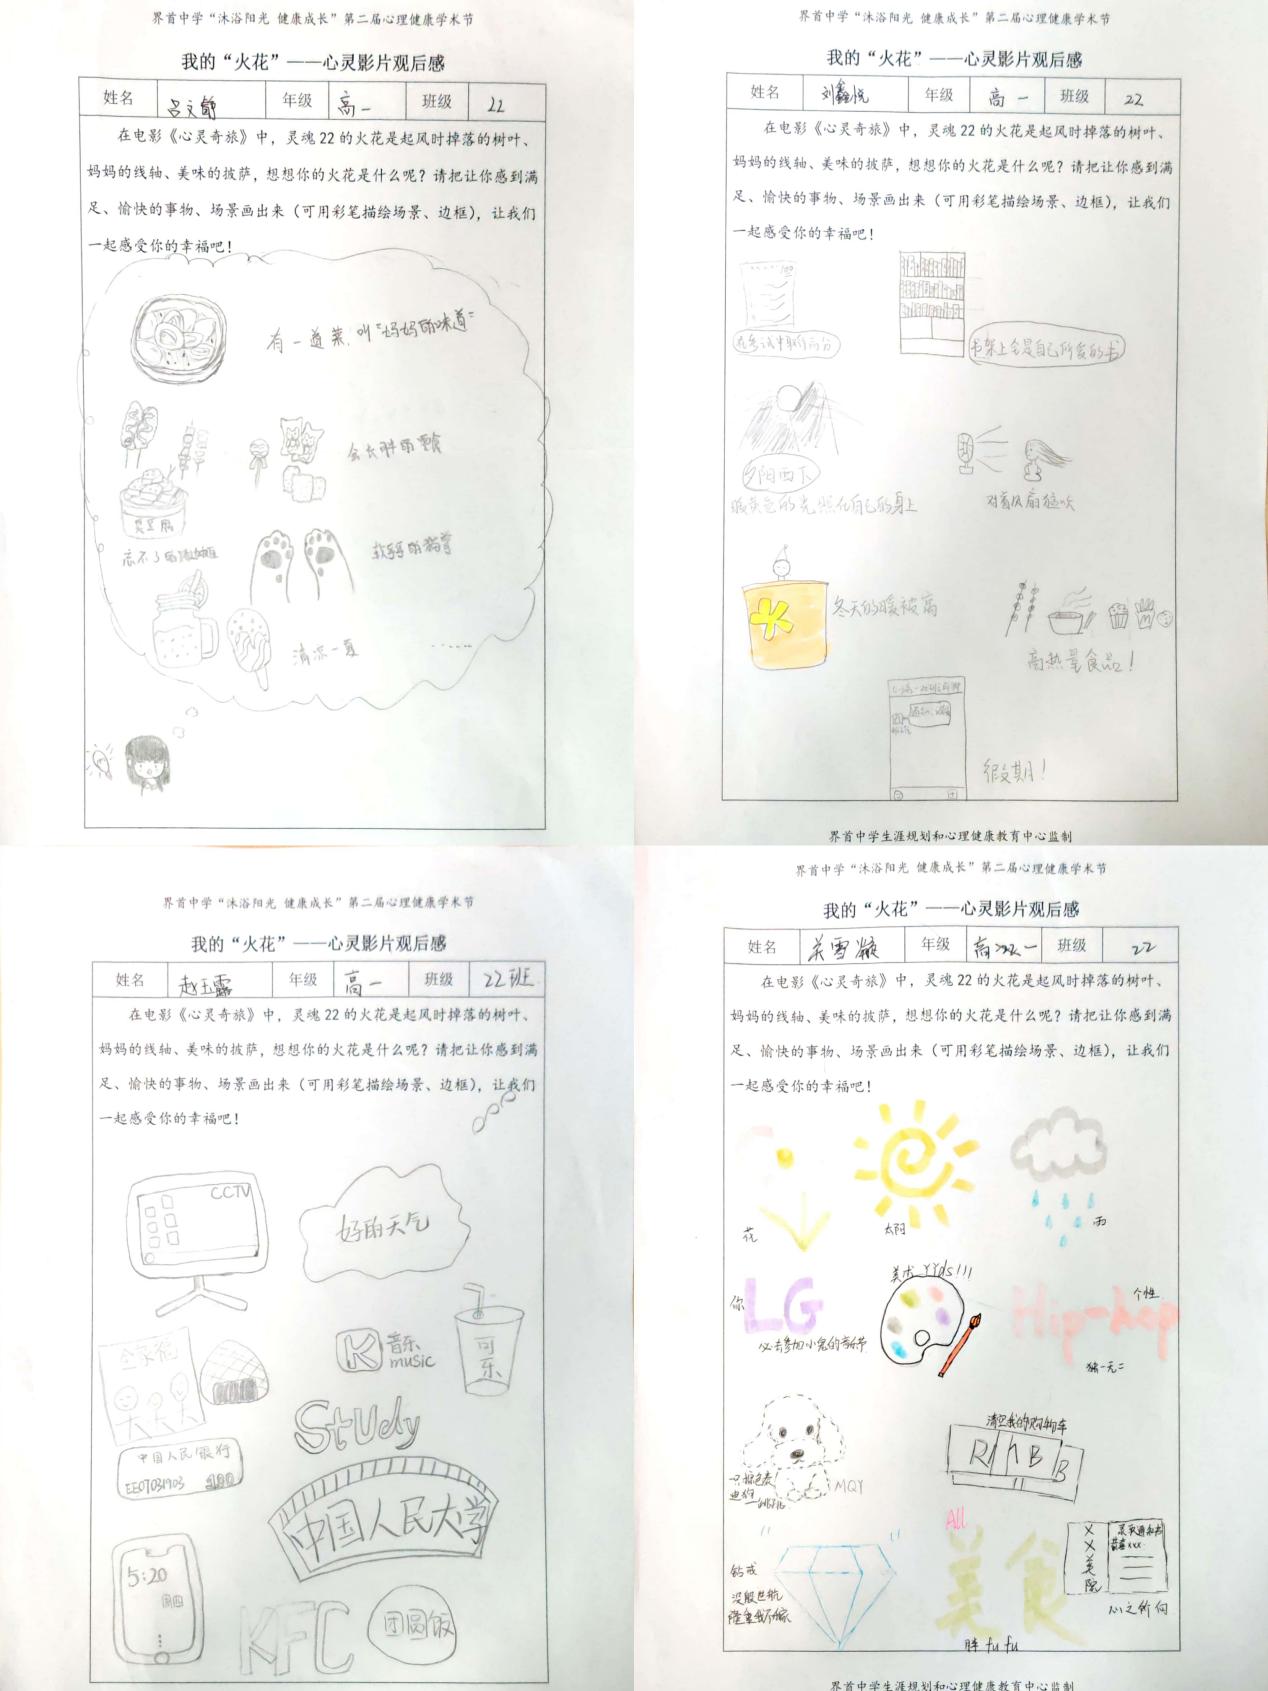 界首中学“沐浴阳光 健康成长”第二届心理健康学术节
我的“火花”——心灵影片观后感
姓名 吕文静 年级 高一 班级 22
在电影《心灵奇旅》中，灵魂22的火花是起风时掉落的树叶、
妈妈的线轴、美味的披萨，想想你的火花是什么呢？请把让你感到满
足、愉快的事物、场景画出来（可用彩笔描绘场景、边框），让我们
一起感受你的幸福吧！
有一道菜，叫“妈妈的味道”
会长胖的零食
臭豆腐
忘不了的
软乎乎的猫掌
清凉一夏
......
界首中学“沐浴阳光 健康成长”第二届心理健康学术节
我的“火花”——心灵影片观后感
姓名 刘鑫悦 年级 高一 班级 22
在电影《心灵奇旅》中，灵魂22的火花是起风时掉落的树叶、
妈妈的线轴、美味的披萨，想想你的火花是什么呢？请把让你感到满
足、愉快的事物、场景画出来（可用彩笔描绘场景、边框），让我们
一起感受你的幸福吧！
在考试中取得高分
书架上全是自己所爱的书
夕阳西下
暖黄色的光照在自己的身上
对着风扇猛吹
冬天的暖被窝
高热量食品！
假期！
界首中学生涯规划和心理健康教育中心监制
界首中学“沐浴阳光 健康成长”第二届心理健康学术节
我的“火花”——心灵影片观后感
姓名 赵玉露 年级 高一 班级 22班
在电影《心灵奇旅》中，灵魂22的火花是起风时掉落的树叶、
妈妈的线轴、美味的披萨，想想你的火花是什么呢？请把让你感到满
足、愉快的事物、场景画出来（可用彩笔描绘场景、边框），让我们
一起感受你的幸福吧！
CCTV
好的天气
全家福
K 音乐
music
可乐
Study
中国人民银行
EE07031903 100
中国人民大学
5:20
周四
KFC
团圆饭
界首中学“沐浴阳光 健康成长”第二届心理健康学术节
我的“火花”——心灵影片观后感
姓名 雪 年级 高一 班级 22
在电影《心灵奇旅》中，灵魂22的火花是起风时掉落的树叶、
妈妈的线轴、美味的披萨，想想你的火花是什么呢？请把让你感到满
足、愉快的事物、场景画出来（可用彩笔描绘场景、边框），让我们
一起感受你的幸福吧！
花
太阳
雨
你LG
必去参加小鬼的音乐节
美术 YYds!!!
Hip-hop
个性
独一无二
MQY
清空我的购物车
RMB
钻戒
All
美食
胖 fufu
XX美院
录取通知书
心之所向
界首中学生涯规划和心理健康教育中心监制